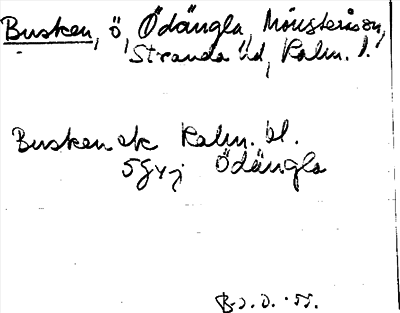 Busken, ö, Ödängla, Mönsterås sn,
Stranda hd, Kalm. l.
Busken ek Kalm. bl.
5G Ödängla